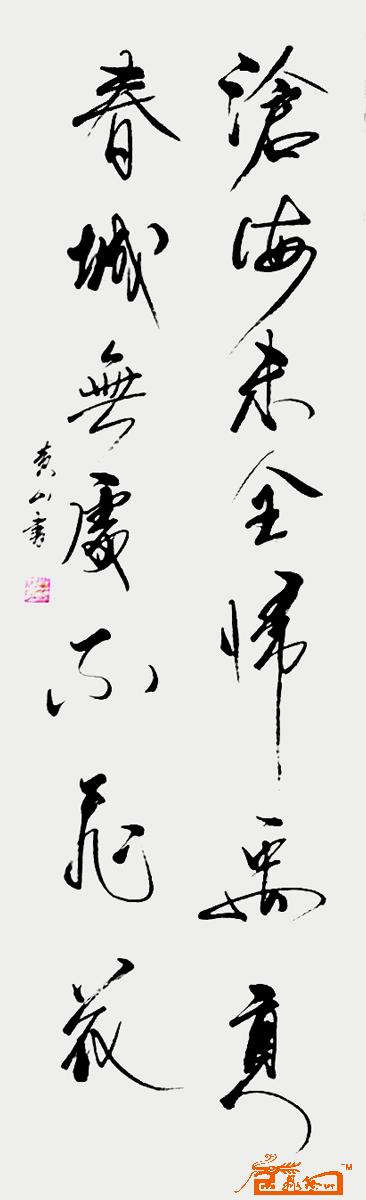 滄海未全歸禹貢
春城無處不飛花
黄山書
TM